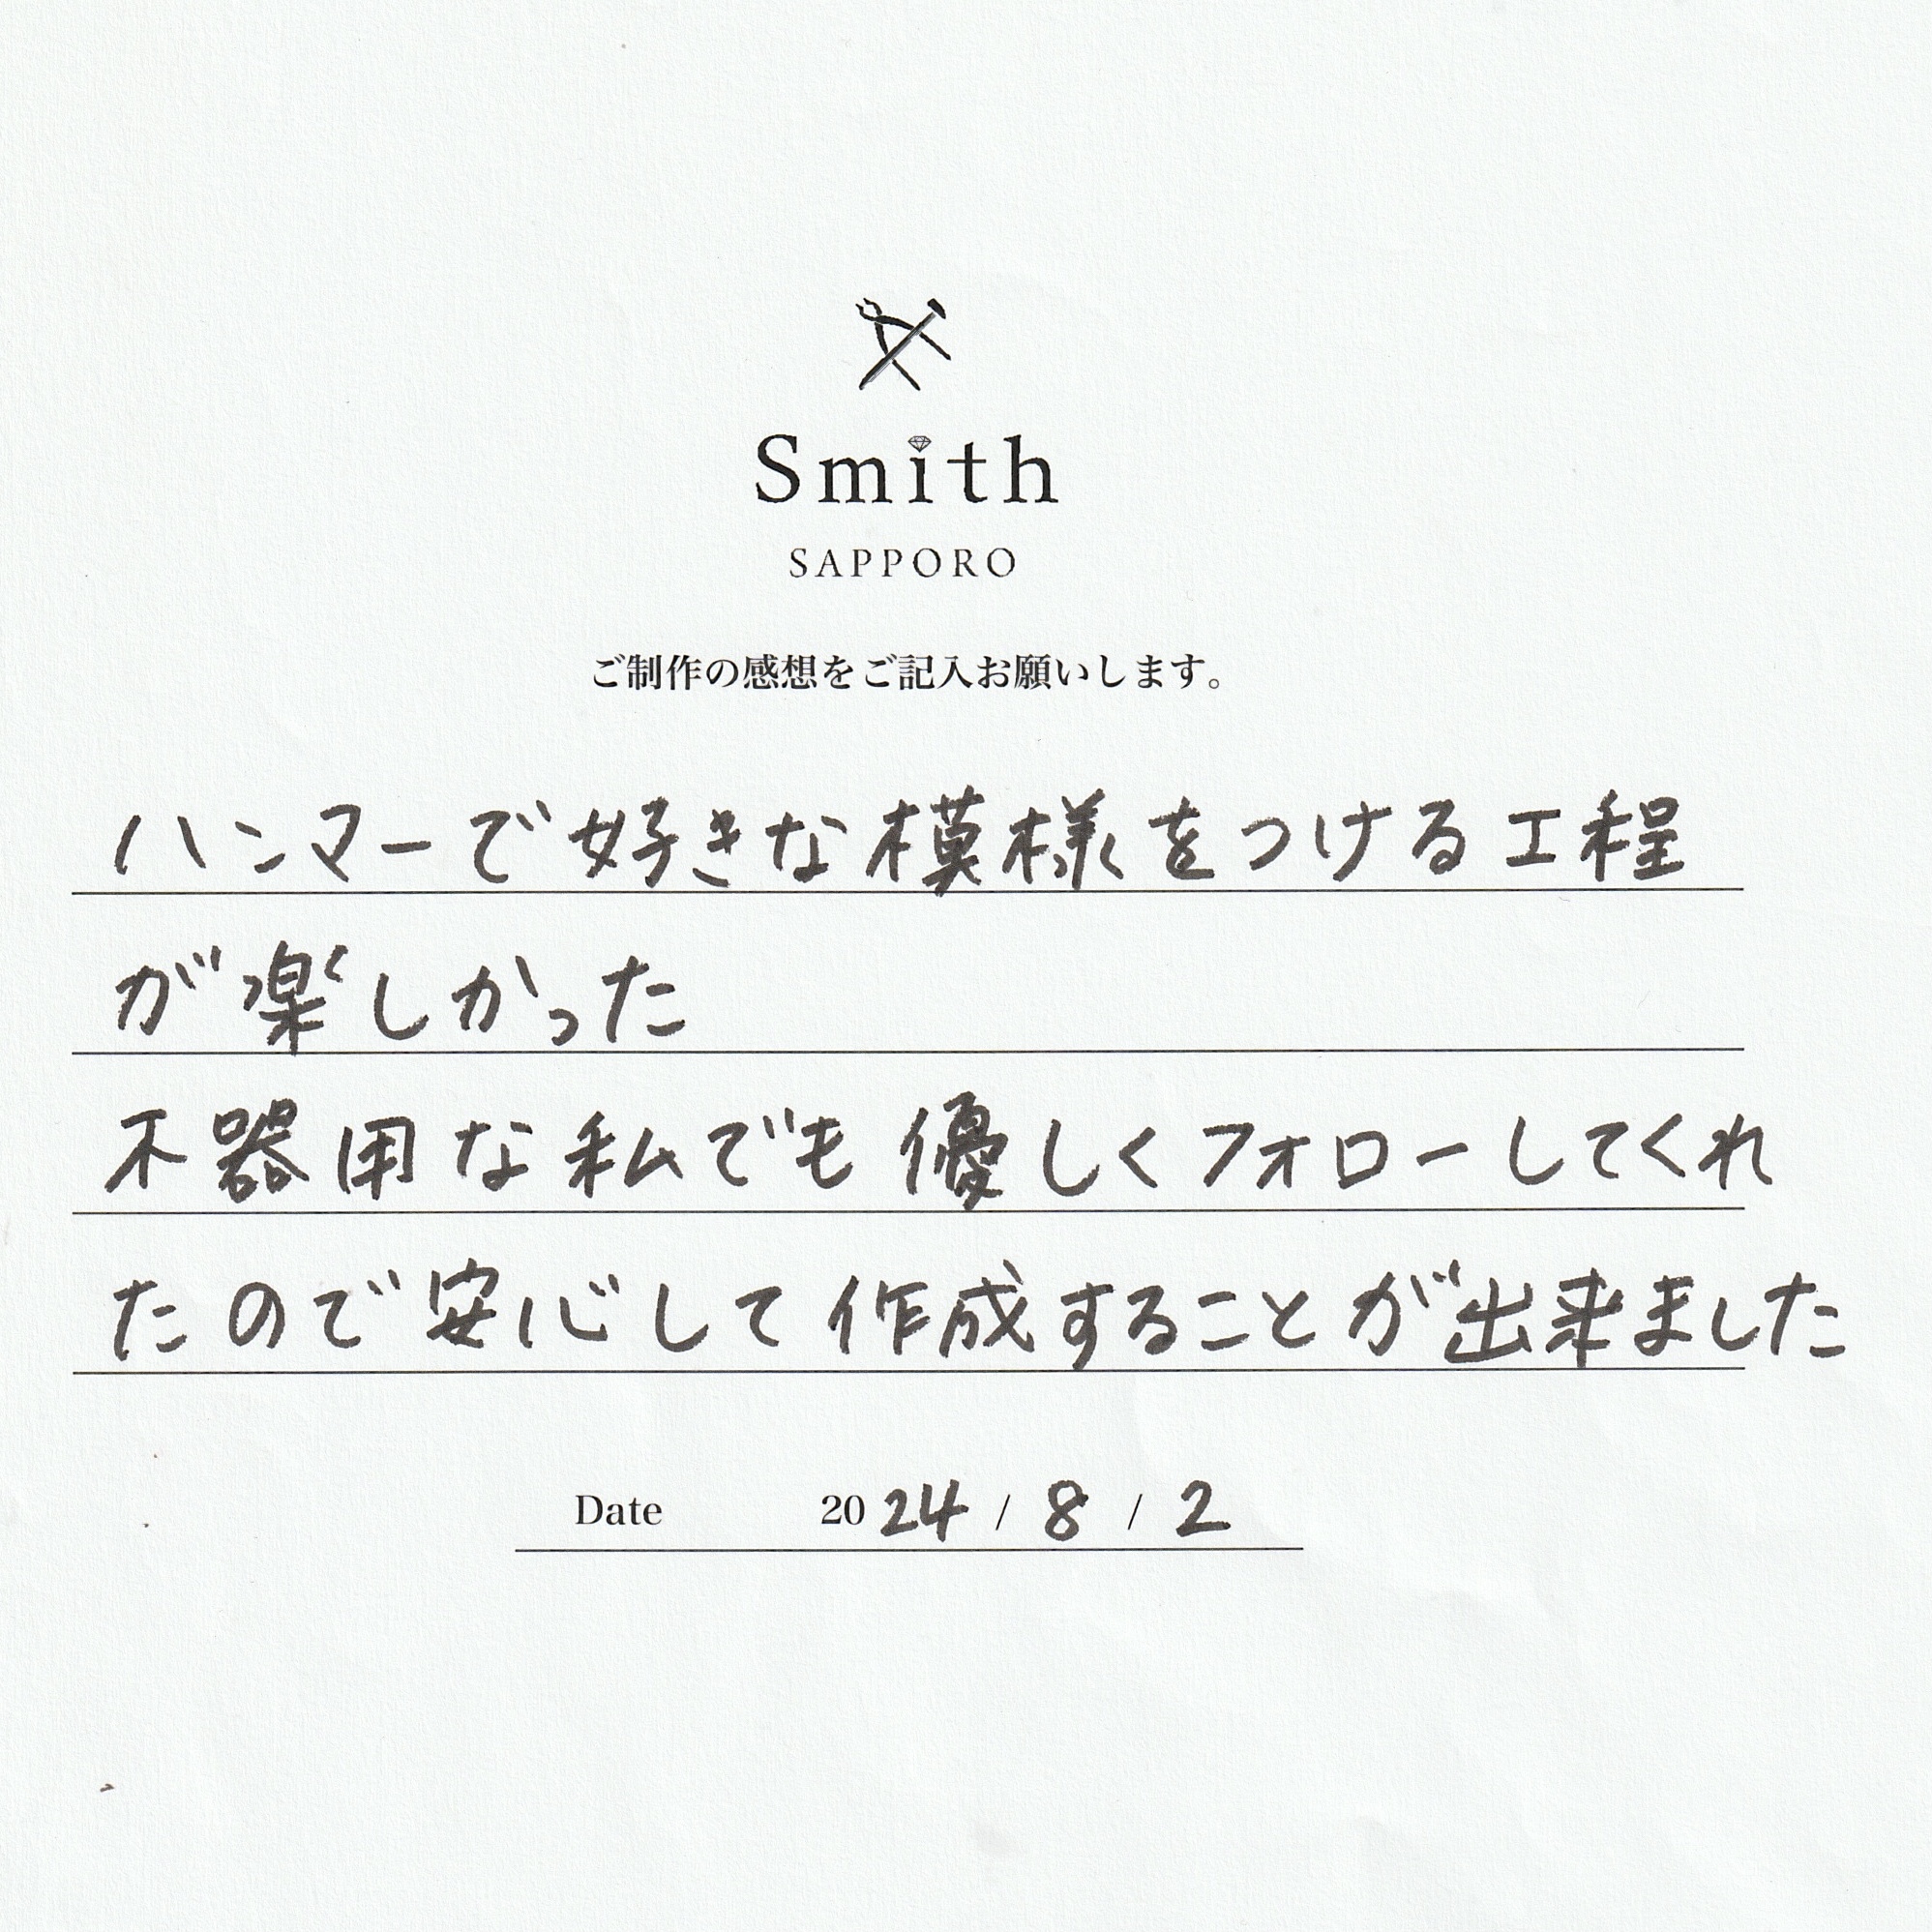 Smith
SAPPORO
ご制作の感想をご記入お願いします。
ハンマーで好きな模様をつける工程
が楽しかった
不器用な私でも優しくフォローしてくれ
たので安心して作成することが出来ました
Date 2024 / 8 / 2